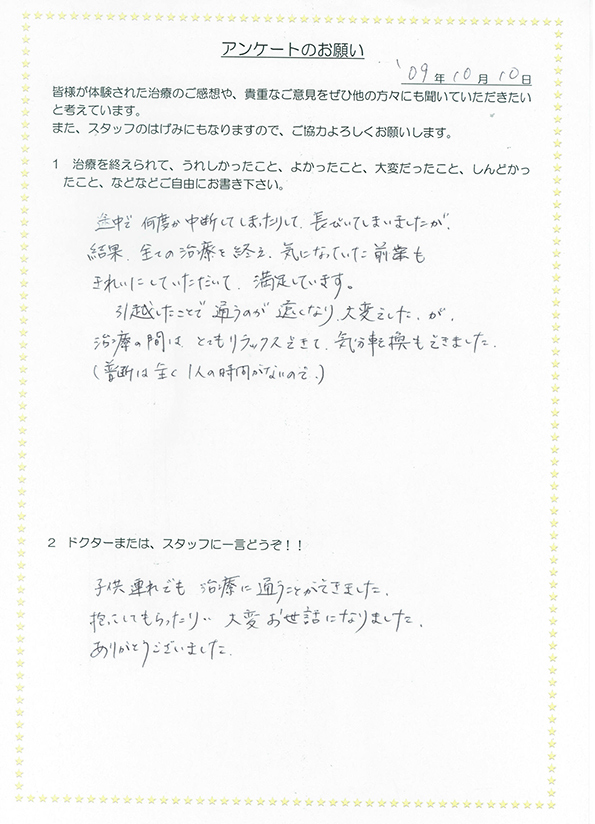 アンケートのお願い
'09年10月10日
皆様が体験された治療のご感想や、貴重なご意見をぜひ他の方々にも聞いていただきたい
と考えています。
また、スタッフのはげみにもなりますので、ご協力よろしくお願いします。
1　治療を終えられて、うれしかったこと、よかったこと、大変だったこと、しんどかっ
たこと、などなどご自由にお書き下さい。
途中で 何度か中断してしまったりして、長びいてしまいましたが、
結果、全ての治療を終え、気になっていた前歯も
きれいにしていただいて、満足しています。
引越したことで通うのが遠くなり、大変でした が、
治療の間は、とてもリラックスできて、気分転換もできました。
(普断は全く1人の時間がないので。)
2　ドクターまたは、スタッフに一言どうぞ！！
子供連れでも 治療に通うことができました。
抱っこしてもらったり… 大変お世話になりました。
ありがとうございました。